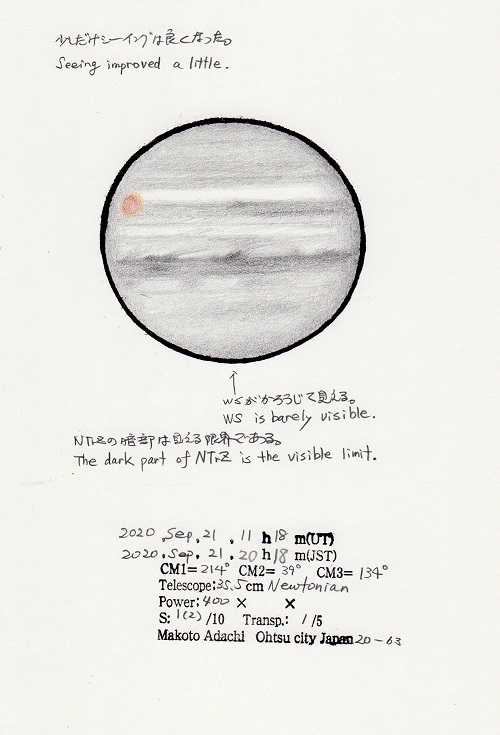 少しだけシーイングは良くなった。
Seeing improved a little.
WSがかろうじて見える。
WS is barely visible.
NTrZの暗部は見える限界である。
The dark part of NTrZ is the visible limit.
2020, Sep, 21, 11 h 18 m(UT)
2020, Sep, 21, 20 h 18 m(JST)
CM1= 214° CM2= 39° CM3= 134°
Telescope: 35.5 cm Newtonian
Power: 400 × ×
S: 1(2) /10 Transp.: 1 /5
Makoto Adachi Ohtsu city Japan 20-63